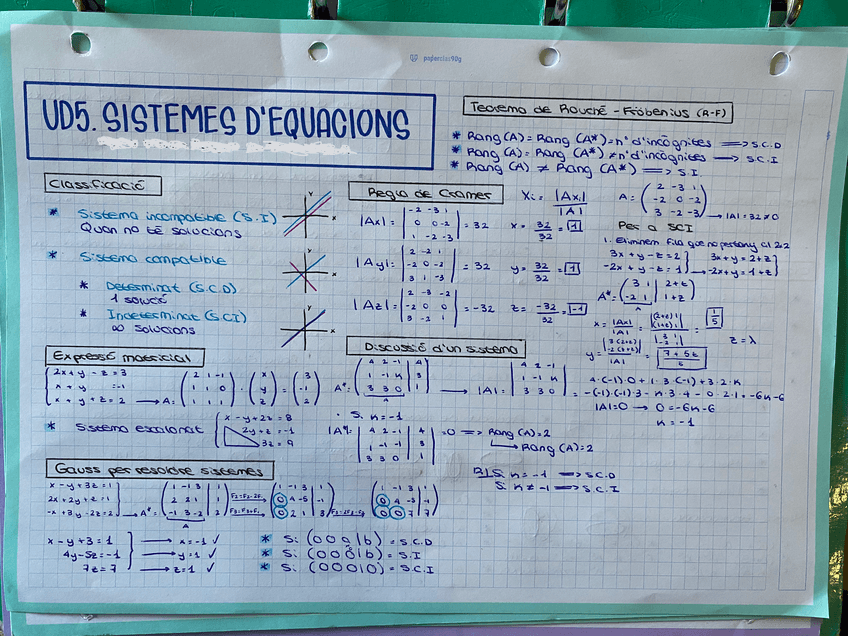 papacolas90g
UD5. SISTEMES D'EQUACIONS
Teorema de Rouché - Fröbenius (R-F)
* Rang(A) = Rang (A*) = nº d'incògnites ⟹ S.C.D
* Rang(A) = Rang (A*) ≠ nº d'incògnites ⟶ S.C.I
* Rang(A) ≠ Rang (A*) ⟹ S.I.
Classificació
* Sistema incompatible (S.I)
Quan no té solucions
* Sistema compatible
* Determinat (S.C.D)
1 solució
* Indeterminat (S.C.I)
∞ solucions
Regla de Cramer
Xi = |Axi| / |A|
A = ( 2 -3 1 ; -2 0 -2 ; 3 -2 -3 ) → |A| = 32 ≠ 0
|Ax| = | -2 -3 1 ; 0 0 -2 ; 1 -2 -3 | = 32
x = 32/32 = 1
|Ay| = | 2 -2 1 ; -2 0 -2 ; 3 1 -3 | = 32
y = 32/32 = 1
|Az| = | 2 -3 -2 ; -2 0 0 ; 3 -2 1 | = -32
z = -32/32 = -1
Per a SCI
1. Eliminem fila que no pertany al 2x2
3x + y - z = 2 } 3x + y = 2 + z }
-2x + y - z = 1 } → -2x + y = 1 + z }
A* = ( 3 1 | 2+z ; -2 1 | 1+z )
A
x = |Ax| / |A| = | (2+z) 1 ; (1+z) 1 | / | 3 1 ; -2 1 | = 1/5
z = λ
Expressió matricial
{ 2x + y - z = 3
x + y = -1
x + y + z = 2 → A = ( 2 1 -1 ; 1 1 0 ; 1 1 1 ) · ( x ; y ; z ) = ( 3 ; -1 ; 2 )
* Sistema escalonat { x - y + 2z = 8
2y + z = -1
3z = 9
Discussió d'un sistema
A* = ( 4 2 -1 | 4 ; 1 -1 k | 3 ; 3 3 0 | 1 ) → |A| = | 4 2 -1 ; 1 -1 k ; 3 3 0 |
A
4·(-1)·0 + 1·3·(-1) + 3·2·k
-(-1)·(-1)·3 - k·3·4 - 0·2·1 = -6k-6
|A| = 0 → 0 = -6k - 6
k = -1
· Si k = -1
= 0 ⟹ Rang (A) = 2
Rang (A) = 2
R/ Si k = -1 ⟹ S.C.D
Si k ≠ -1 ⟹ S.C.I
Gauss per resoldre sistemes
x - y + 3z = 1
2x + 2y + z = 1
-x + 3y - 2z = 2 → A* = ( 1 -1 3 | 1 ; 2 2 1 | 1 ; -1 3 -2 | 2 )
A
( 1 -1 3 | 1 ; 0 4 -5 | -1 ; 0 2 1 | 3 )
( 1 -1 3 | 1 ; 0 4 -5 | -1 ; 0 0 7 | 7 )
x - y + 3 = 1 → x = -1 ✓
4y - 5z = -1 → y = 1 ✓
7z = 7 → z = 1 ✓
* Si (0 0 a | b) = S.C.D
* Si (0 0 0 | b) = S.I
* Si (0 0 0 | 0) = S.C.I